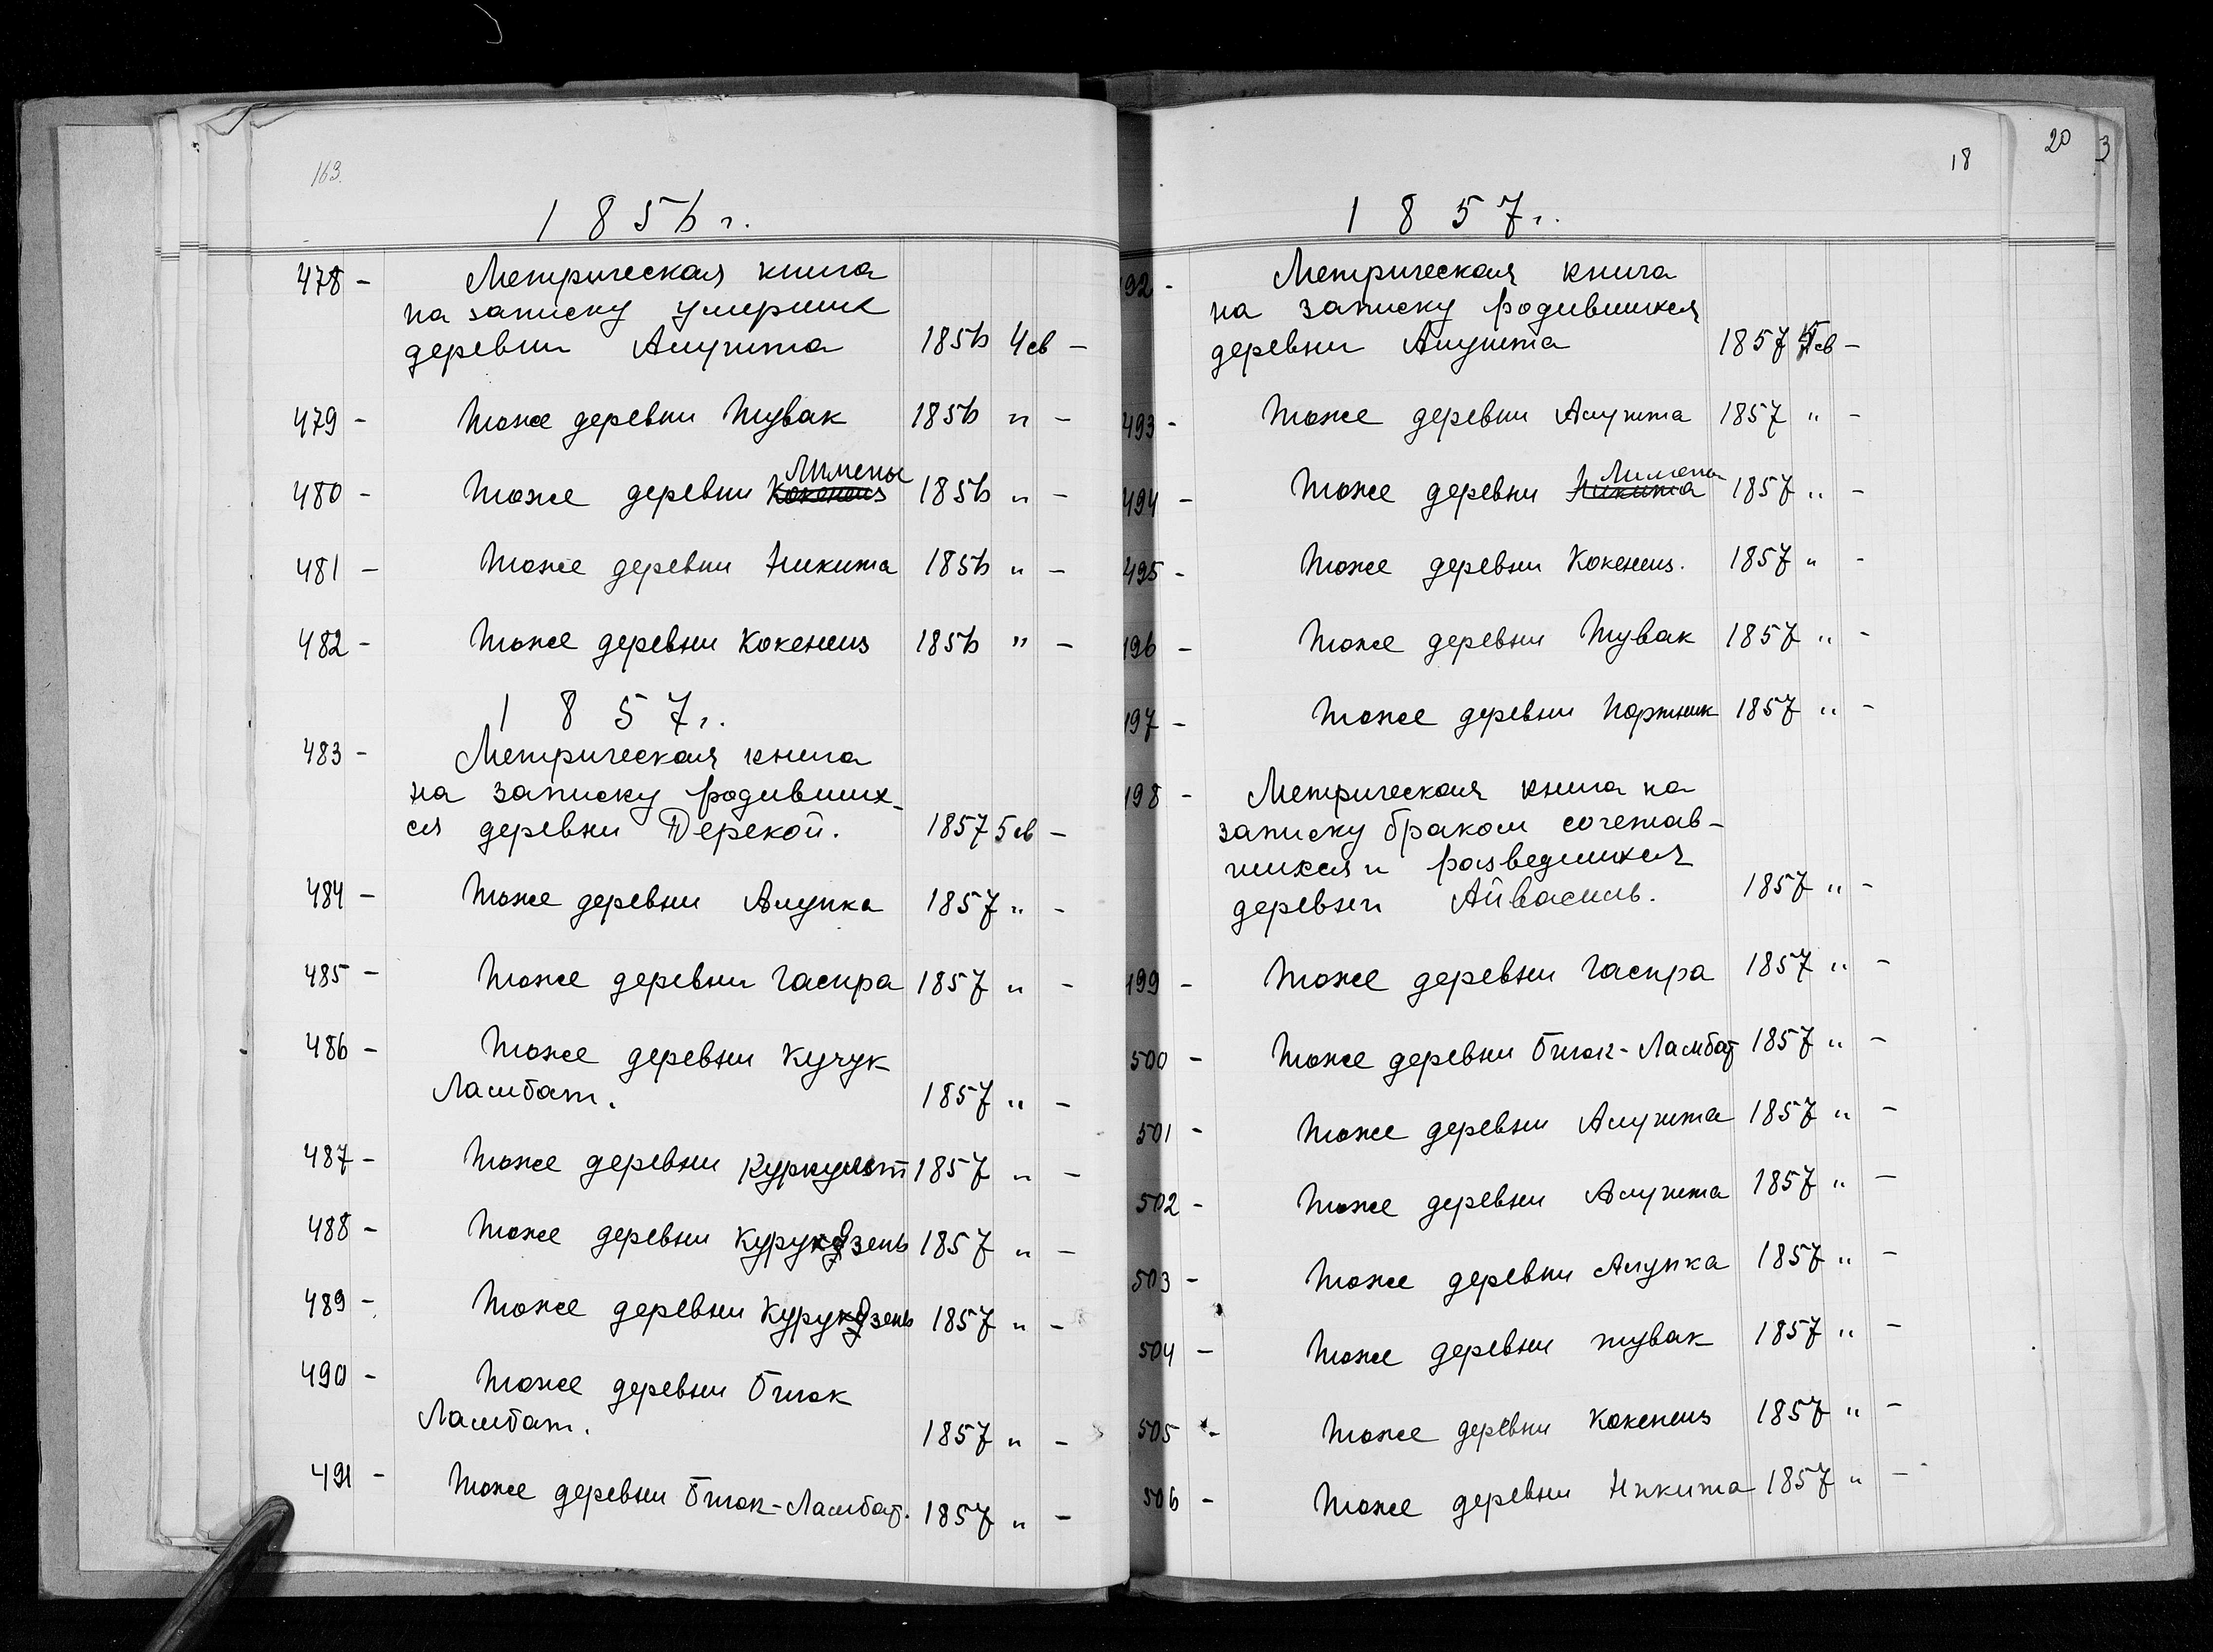 163.
1856 г.
478 - Метрическая книга
на записку умерших
деревни Алушта 1856 4 св -
479 - Тоже деревни Тувак 1856 " -
Лимены
480 - Тоже деревни Кокенеиз 1856 " -
481 - Тоже деревни Никита 1856 " -
482 - Тоже деревни Кокенеиз 1856 " -
1857 г.
483 - Метрическая книга
на записку родивших-
ся деревни Дерекой. 1857 5 св -
484 - Тоже деревни Алупка 1857 " -
485 - Тоже деревни Гаспра 1857 " -
486 - Тоже деревни Кучук
Ламбат. 1857 " -
487 - Тоже деревни 1857 " -
488 - Тоже деревни Курукузень 1857 " -
489 - Тоже деревни Курукузень 1857 " -
490 - Тоже деревни Биюк
Ламбат. 1857 " -
491 - Тоже деревни Биюк-Ламбат. 1857 " -
18
20
3
1857 г.
492 - Метрическая книга
на записку родившихся
деревни Алушта 1857 5 св -
493 - Тоже деревни Алушта 1857 " -
Лимена
494 - Тоже деревни Никита 1857 " -
495 - Тоже деревни Кокенеиз. 1857 " -
496 - Тоже деревни Тувак 1857 " -
497 - Тоже деревни Партенит 1857 " -
498 - Метрическая книга на
записку браком сочетав-
шихся и разведшихся
деревни Айвасиль. 1857 " -
499 - Тоже деревни Гаспра 1857 " -
500 - Тоже деревни Биюк-Ламбат 1857 " -
501 - Тоже деревни Алушта 1857 " -
502 - Тоже деревни Алушта 1857 " -
503 - Тоже деревни Алупка 1857 " -
504 - Тоже деревни Тувак 1857 " -
505 - Тоже деревни Кокенеиз 1857 " -
506 - Тоже деревни Никита 1857 " -